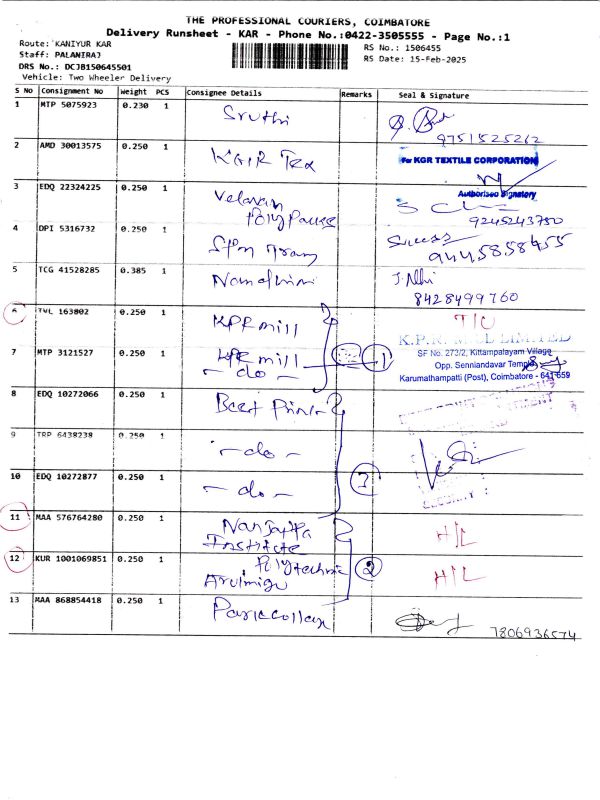 THE PROFESSIONAL COURIERS, COIMBATORE
Delivery Runsheet - KAR - Phone No.:0422-3505555 - Page No.:1
Route: KANIYUR KAR
RS No.: 1506455
Staff: PALANIRAJ
RS Date: 15-Feb-2025
DRS No.: DCJB150645501
Vehicle: Two Wheeler Delivery
S No Consignment No Weight PCS Consignee Details Remarks Seal & Signature
1 MTP 5075923 0.230 1 Sruthi
9751525262
2 AMD 30013575 0.250 1 KGR Tex
For KGR TEXTILE CORPORATION
Authorised Signatory
3 EDQ 22324225 0.250 1 Velavan
9245243750
4 DPI 5316732 0.250 1
9445858455
5 TCG 41528285 0.385 1
8428499760
6 TVL 163802 0.250 1 KPR mill
K.P.R. MILL LIMITED
SF No. 273/2, Kittampalayam Village
7 MTP 3121527 0.250 1 KPR mill 1
- do -
Opp. Senniandavar Temple
Karumathampatti (Post), Coimbatore - 641 659
8 EDQ 10272066 0.250 1 Best
9 TRP 6438238 0.250 1 - do -
10 EDQ 10272877 0.250 1 - do - 3
SECURITY
11 MAA 576764280 0.250 1 Nanjappa
Institute
H/L
12 KUR 1001069851 0.250 1 Polytechnic
Arulmigu
2 H/L
13 MAA 868854418 0.250 1
7806936574